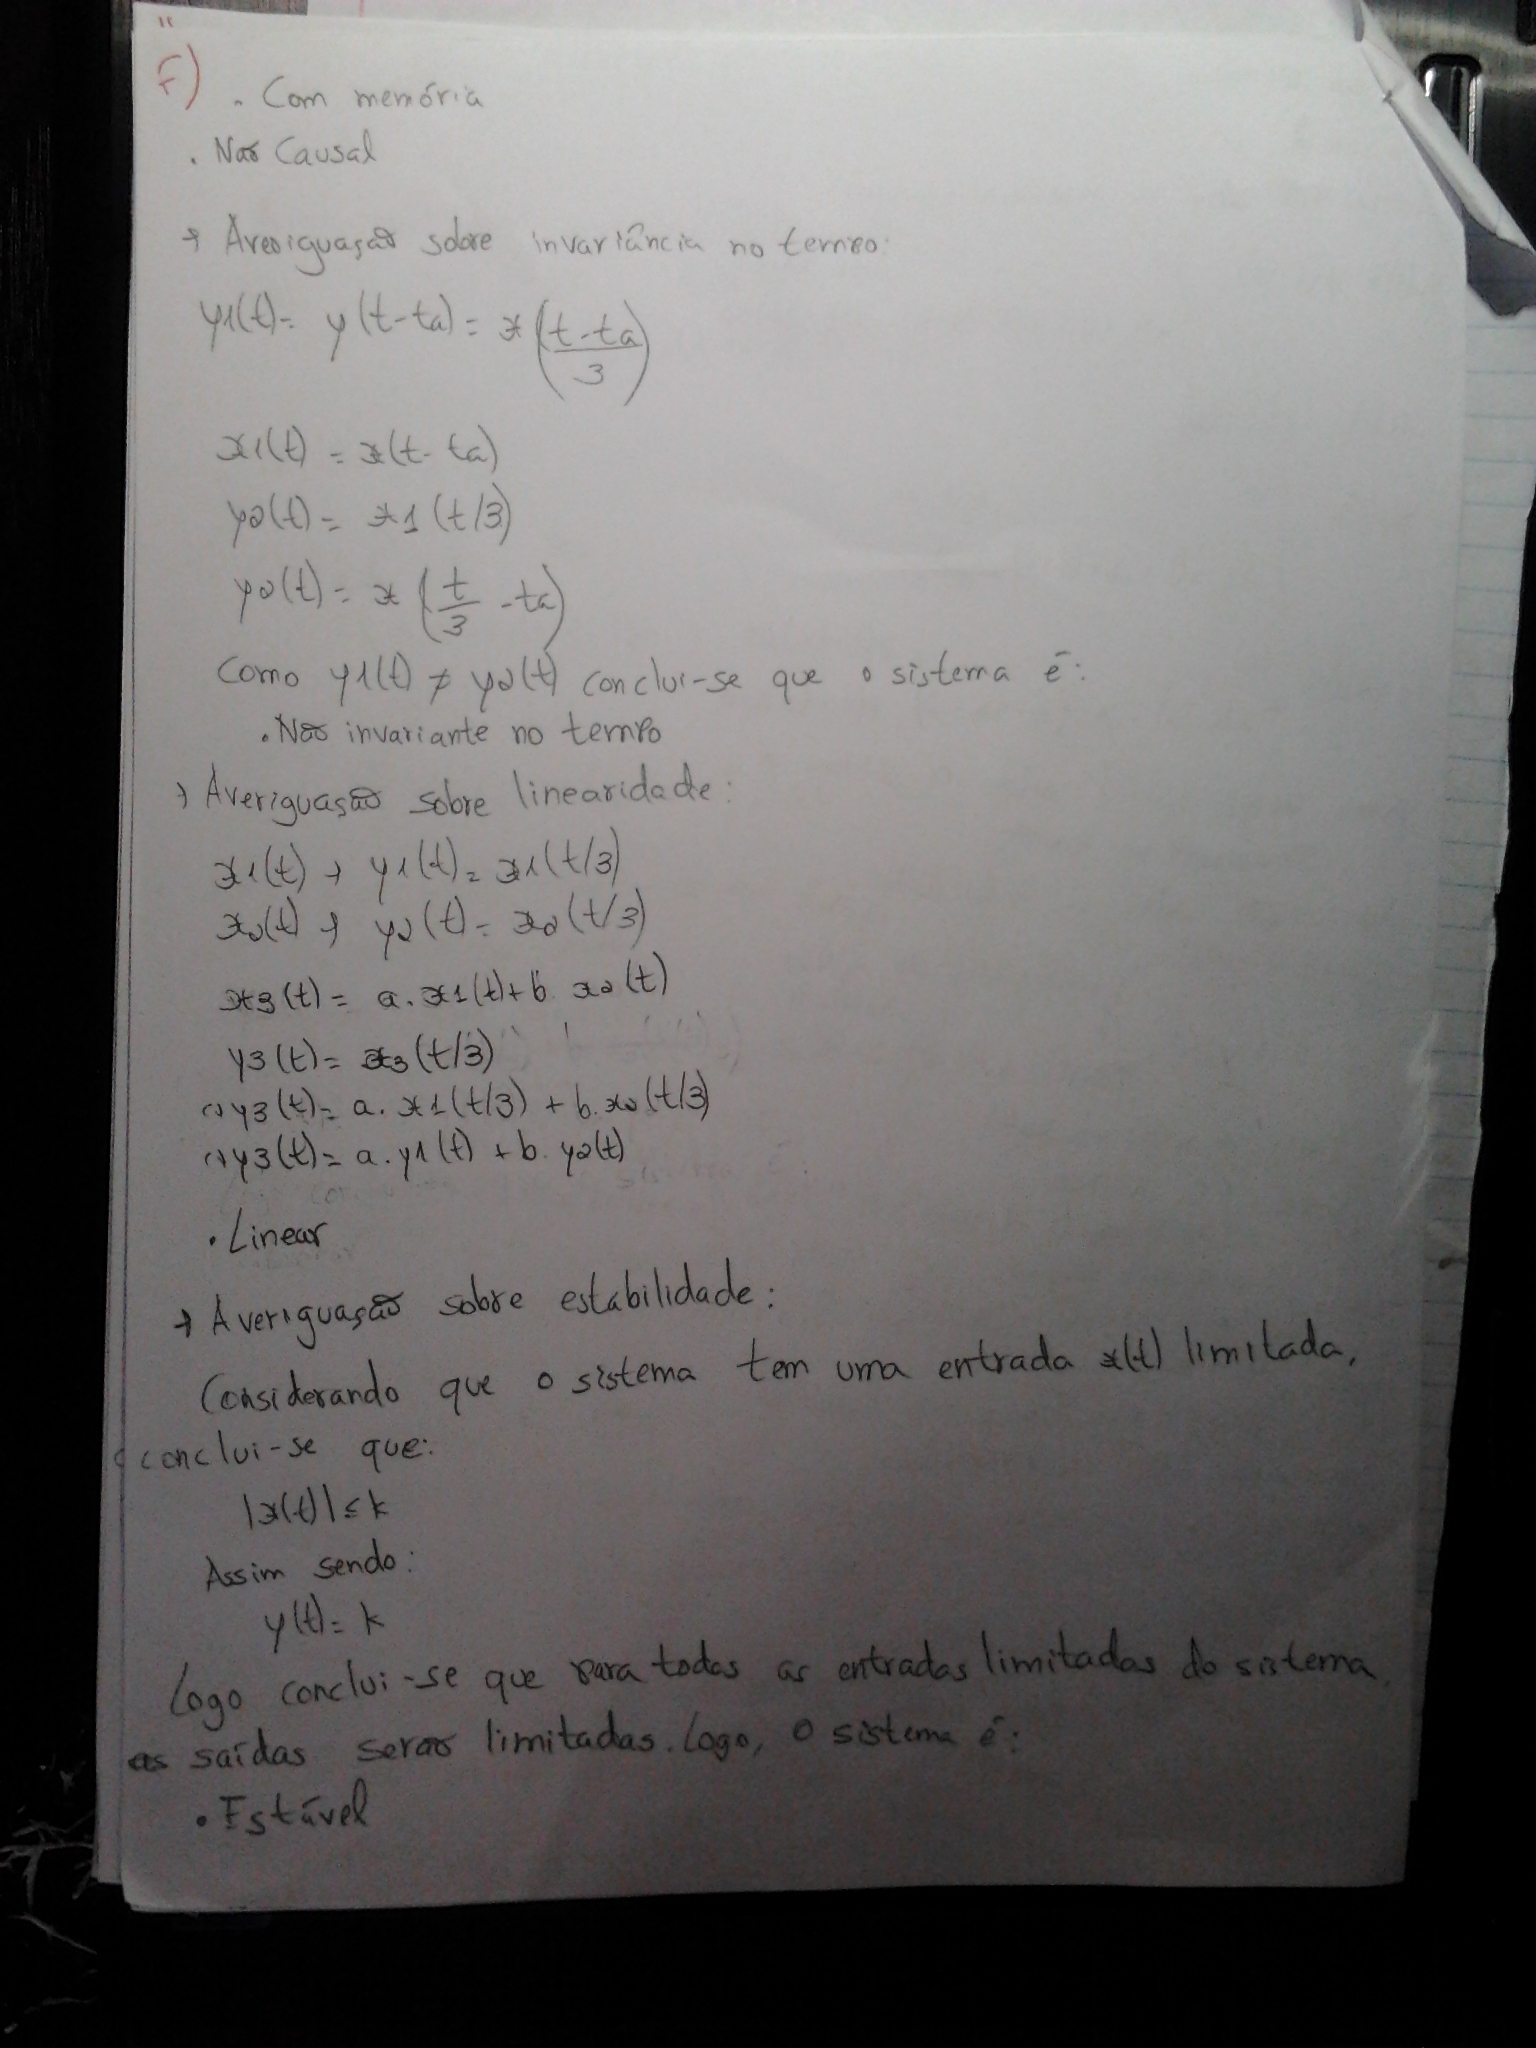 F) . Com memória
. Não Causal
→ Averiguação sobre invariância no tempo:
y1(t) = y(t-ta) = x((t-ta)/3)
x1(t) = x(t-ta)
y2(t) = x1(t/3)
y2(t) = x(t/3 - ta)
Como y1(t) ≠ y2(t) conclui-se que o sistema é:
. Não invariante no tempo
→ Averiguação sobre linearidade:
x1(t) → y1(t) = x1(t/3)
x2(t) → y2(t) = x2(t/3)
x3(t) = a.x1(t) + b.x2(t)
y3(t) = x3(t/3)
(=) y3(t) = a.x1(t/3) + b.x2(t/3)
(=) y3(t) = a.y1(t) + b.y2(t)
. Linear
→ Averiguação sobre estabilidade:
Considerando que o sistema tem uma entrada x(t) limitada,
conclui-se que:
|x(t)| ≤ k
Assim sendo:
y(t) = k
Logo conclui-se que para todas as entradas limitadas do sistema,
as saídas serão limitadas. Logo, o sistema é:
. Estável